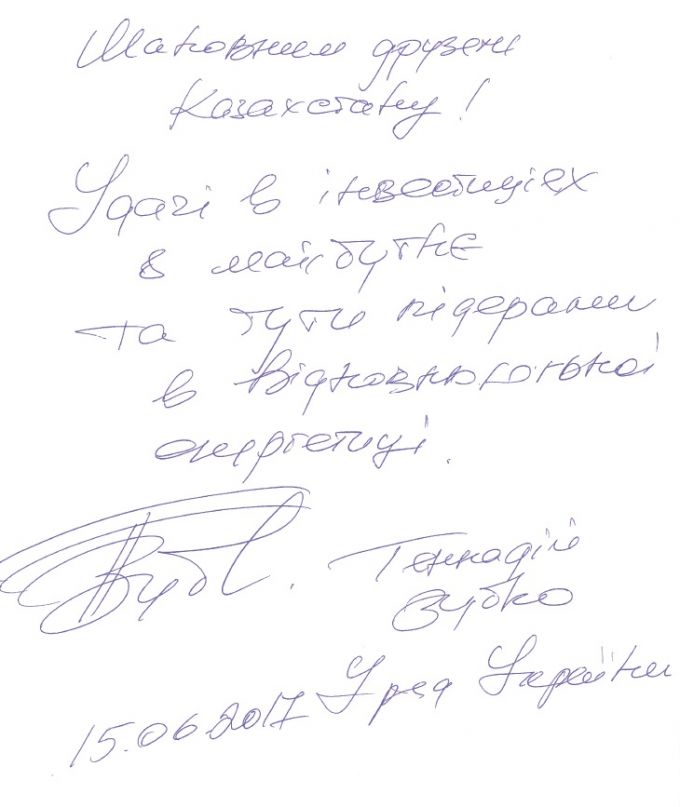 Шановним друзям
Казахстану!
Удачі в інвестиціях
в майбутнє
та бути лідерами
в відновлювальної
енергетиці.
Геннадій
Зубко
15.06.2017 Уряд України